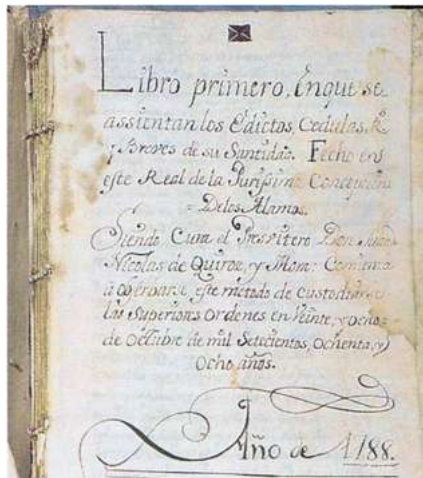 Libro primero, Enque se
assientan los Edictos, Cedulas, R.
y Breves de su Santidad. Fecho en
este Real de la Purissima Concepcion
Delos Alamos.
Siendo Cura el Presvitero Don
Nicolas de Quiroz, y Mora: Comienza
a observarse este metodo de custodiarse
las Superiores ordenes en veinte, y ocho
de octubre de mil Setecientos, ochenta, y
ocho años.
Año de 1788.